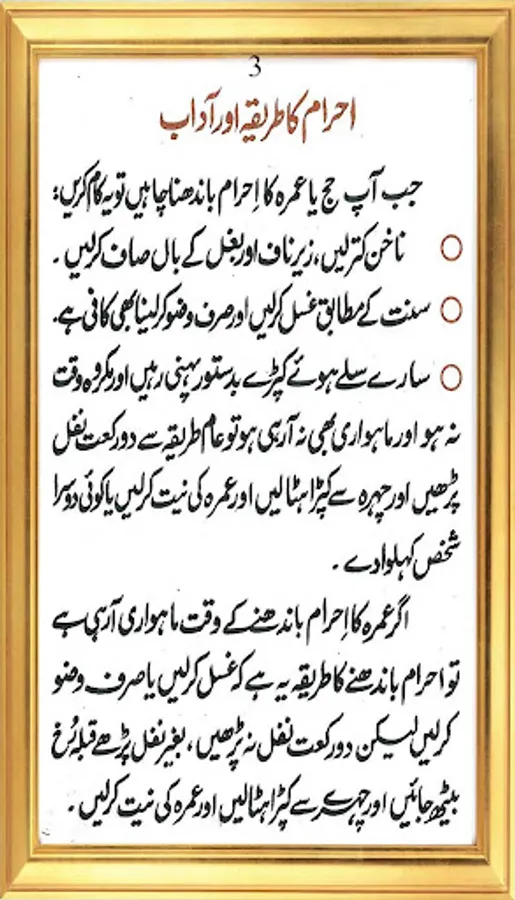 3
احرام کا طریقہ اور آداب
جب آپ حج یا عمرہ کا اِحرام باندھنا چاہیں تو یہ کام کریں:
ناخن کترلیں، زیر ناف اور بغل کے بال صاف کرلیں۔
سنت کے مطابق غسل کرلیں اور صرف وضو کرلینا بھی کافی ہے۔
سارے سلے ہوئے کپڑے بدستور پہنی رہیں اور مکروہ وقت
نہ ہو اور ماہواری بھی نہ آرہی ہو تو عام طریقہ سے دو رکعت نفل
پڑھیں اور چہرہ سے کپڑا ہٹالیں اور عمرہ کی نیت کرلیں یا کوئی دوسرا
شخص کہلوادے۔
اگر عمرہ کا اِحرام باندھنے کے وقت ماہواری آرہی ہے
تو احرام باندھنے کا طریقہ یہ ہے کہ غسل کرلیں یا صرف وضو
کرلیں لیکن دو رکعت نفل نہ پڑھیں، بغیر نفل پڑھے قبلہ رُخ
بیٹھ جائیں اور چہرے سے کپڑا ہٹالیں اور عمرہ کی نیت کرلیں۔